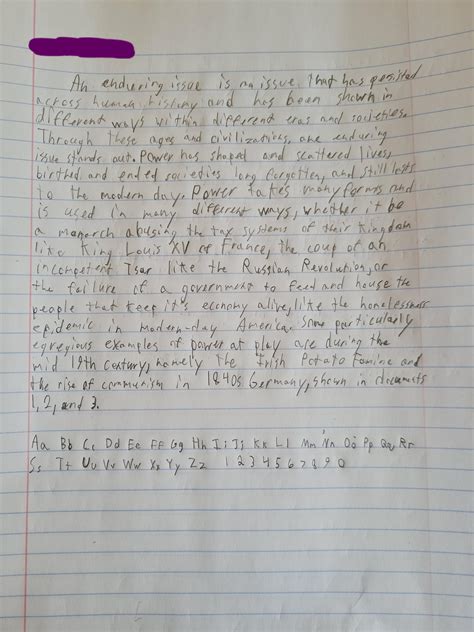 An enduring issue is an issue that has persisted
across human history and has been shown in
different ways within different eras and societies.
Through these ages and civilizations, one enduring
issue stands out. Power has shaped and scattered lives,
birthed and ended societies long forgotten, and still lasts
to the modern day. Power takes many forms and
is used in many different ways, whether it be
a monarch abusing the tax systems of their kingdom
like King Louis XV of France, the coup of an
incompetent Tsar like the Russian Revolution, or
the failure of a government to feed and house the
people that keep it's economy alive, like the homelessness
epidemic in modern-day America. Some particularly
egregious examples of power at play are during the
mid 19th century, namely the Irish Potato Famine and
the rise of communism in 1840s Germany, shown in documents
1, 2, and 3.
Aa Bb Cc Dd Ee Ff Gg Hh Ii Jj Kk Ll Mm Nn Oo Pp Qq Rr
Ss Tt Uu Vv Ww Xx Yy Zz 1 2 3 4 5 6 7 8 9 0